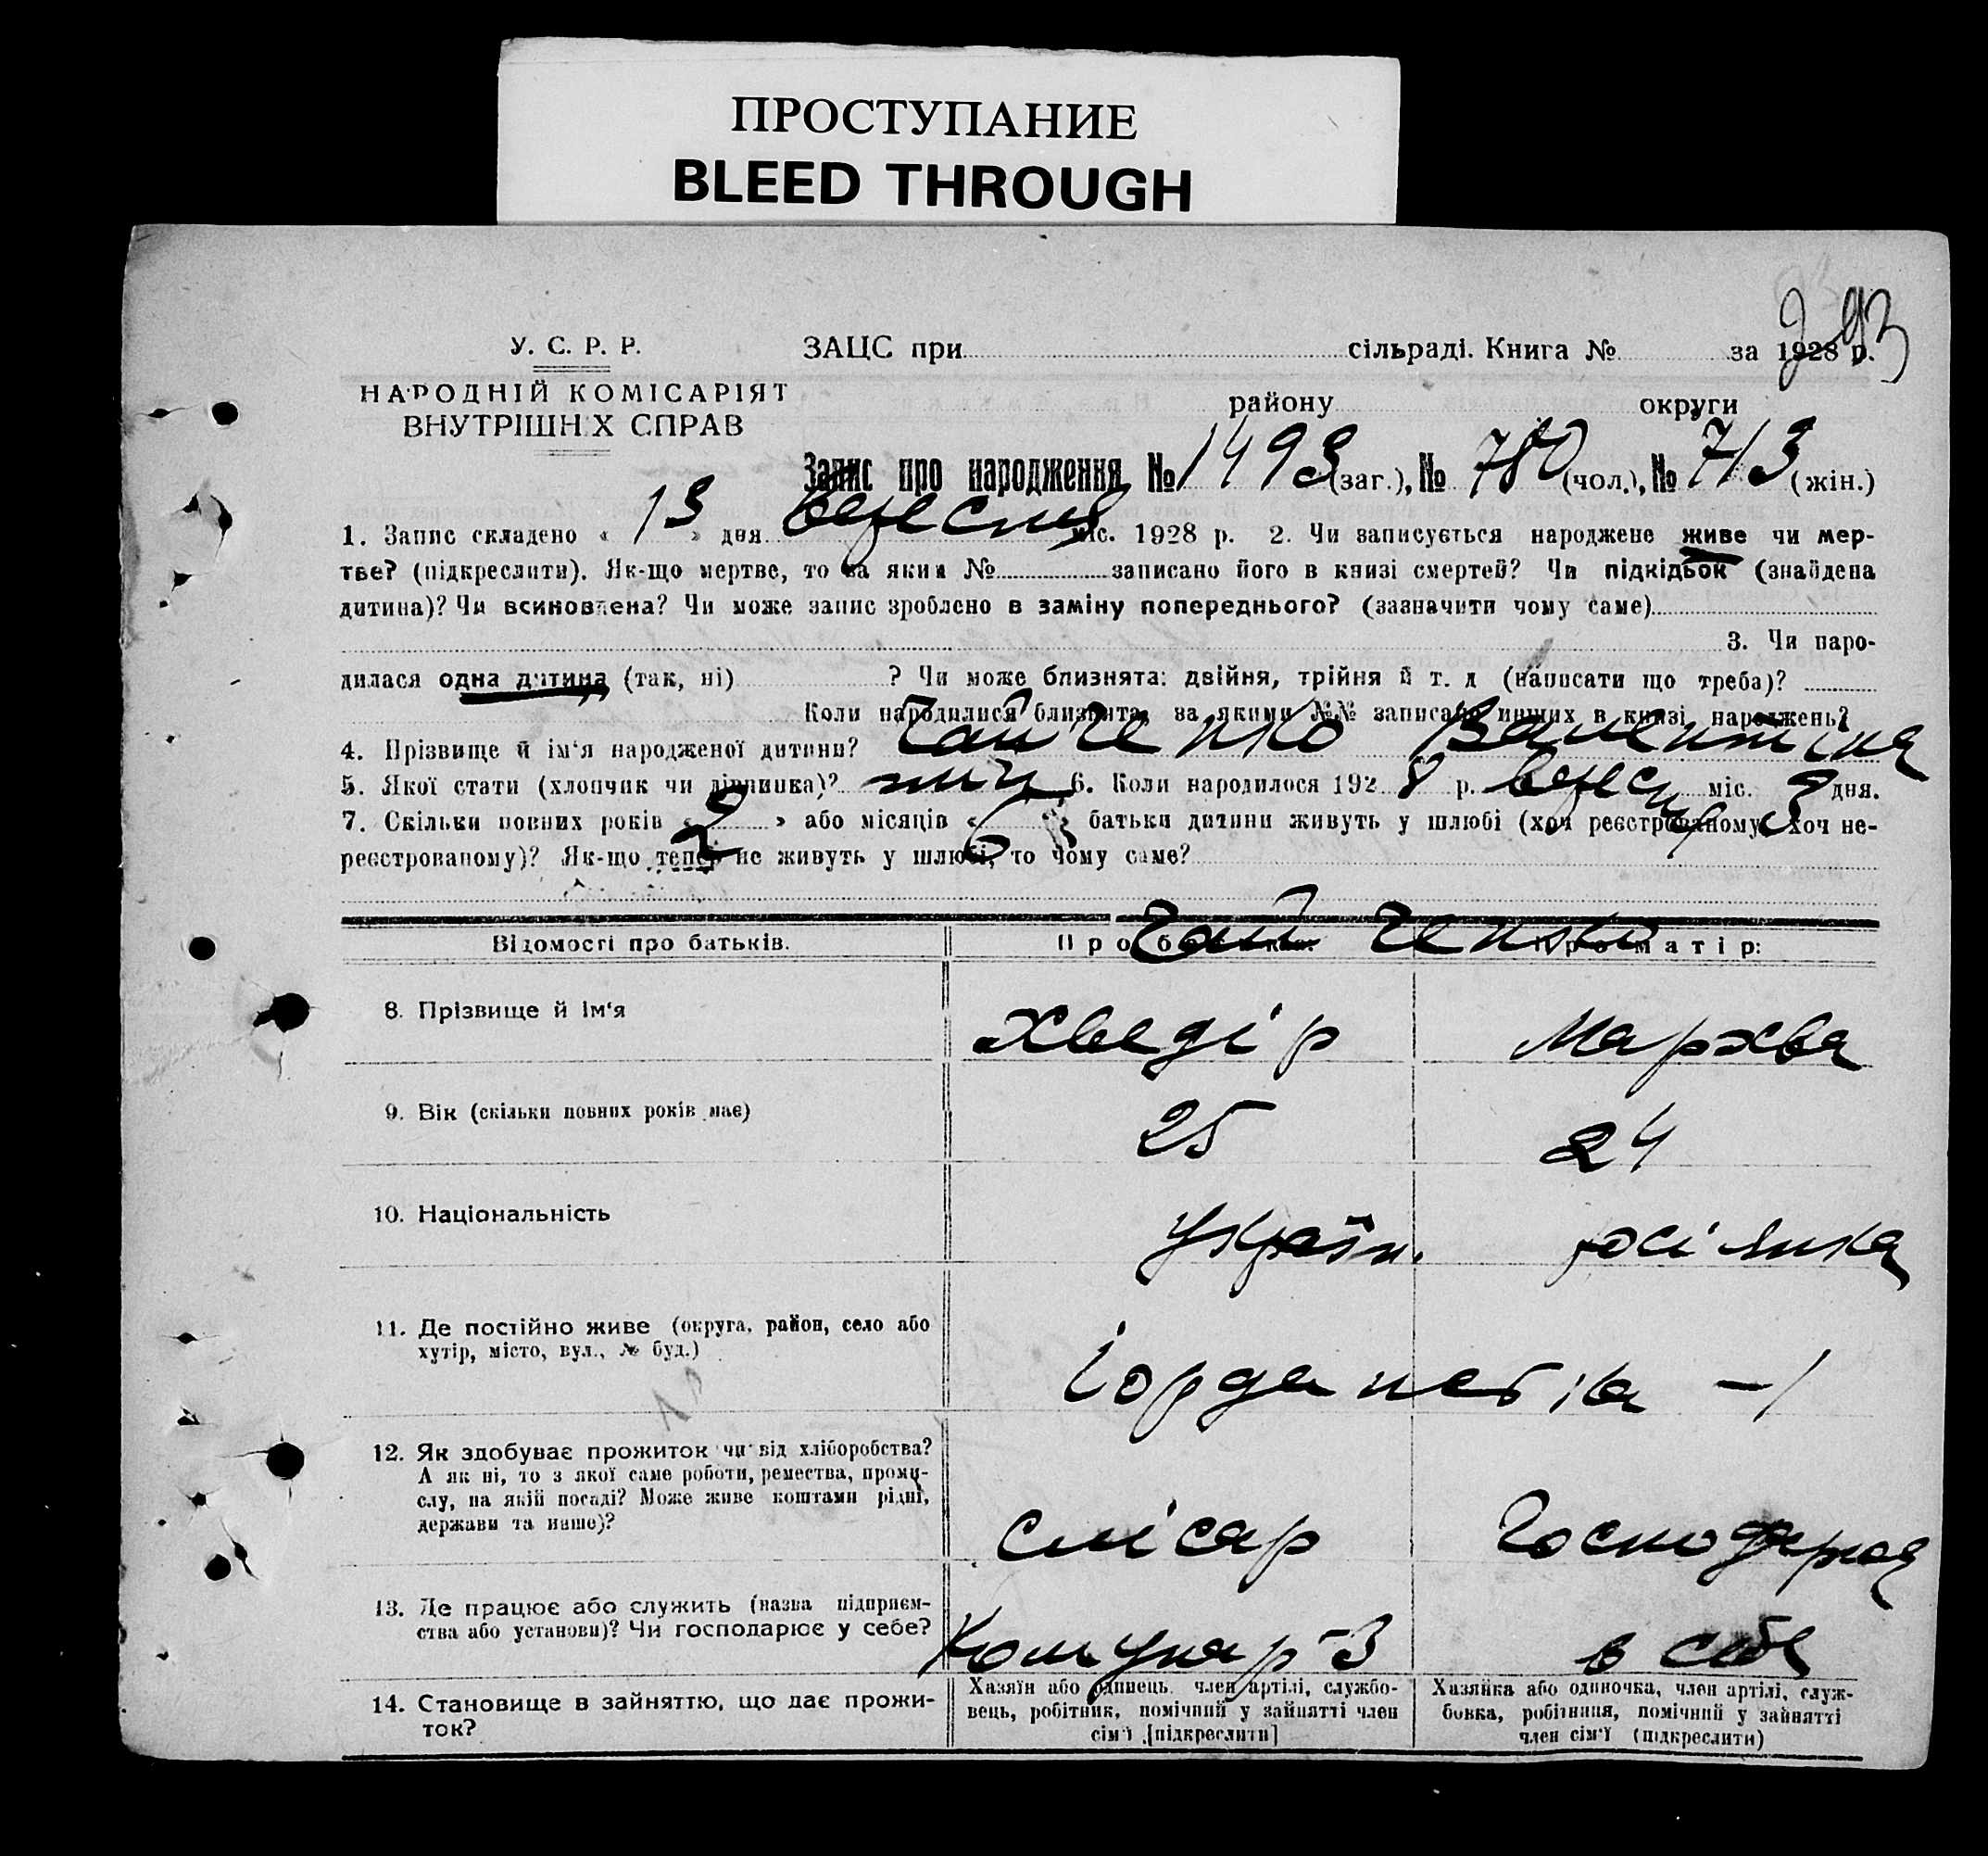 ПРОСТУПАНИЕ
BLEED THROUGH
293
У. С. Р. Р.
НАРОДНІЙ КОМІСАРІЯТ
ВНУТРІШНІХ СПРАВ
ЗАЦС при сільраді. Книга № за 1928 р.
району округи
Запис про народження № 1493 (заг.), № 780 (чол.), № 713 (жін.)
1. Запис складено « 13 » дня вересня міс. 1928 р. 2. Чи записується народжене живе чи мер-
тве? (підкреслити). Як-що мертве, то за яким № записано його в книзі смертей? Чи підкідьок (знайдена
дитина)? Чи всиновлена? Чи може запис зроблено в заміну попереднього? (зазначити чому саме)
3. Чи наро-
дилася одна дитина (так, ні) ? Чи може близнята: двійня, трійня й т. д (написати що треба)?
Коли народилися близнята, за якими №№ записано инших в книзі народжень?
4. Прізвище й ім'я народженої дитини? Чайченко Валентина
5. Якої стати (хлопчик чи дівчинка)? 6. Коли народилося 1928 р. вересня міс. 3 дня.
7. Скільки повних років « 2 » або місяців « 6 » батьки дитини живуть у шлюбі (хоч реєстрованому хоч не-
реєстрованому)? Як-що тепер не живуть у шлюбі, то чому саме?
Чайченко
Відомості про батьків. Про батька: Про матір:
8. Прізвище й ім'я Хведір Мархва
9. Вік (скільки повних років має) 25 24
10. Національність україн. росіянка
11. Де постійно живе (округа, район, село або
хутір, місто, вул., № буд.)
– 1
12. Як здобуває прожиток чи від хліборобства?
А як ні, то з якої саме роботи, ремества, проми-
слу, на якій посаді? Може живе коштами рідні,
держави та инше)?
слісар господарка
13. Де працює або служить (назва підприєм-
ства або установи)? Чи господарює у себе?
Комунар-3 в себе
14. Становище в зайняттю, що дає прожи-
ток?
Хазяїн або одинець, член артілі, службо-
вець, робітник, помічний у зайнятті член
сім'ї [підкреслити]
Хазяйка або одиночка, член артілі, служ-
бовка, робітниця, помічний у зайнятті
член сім'ї (підкреслити)